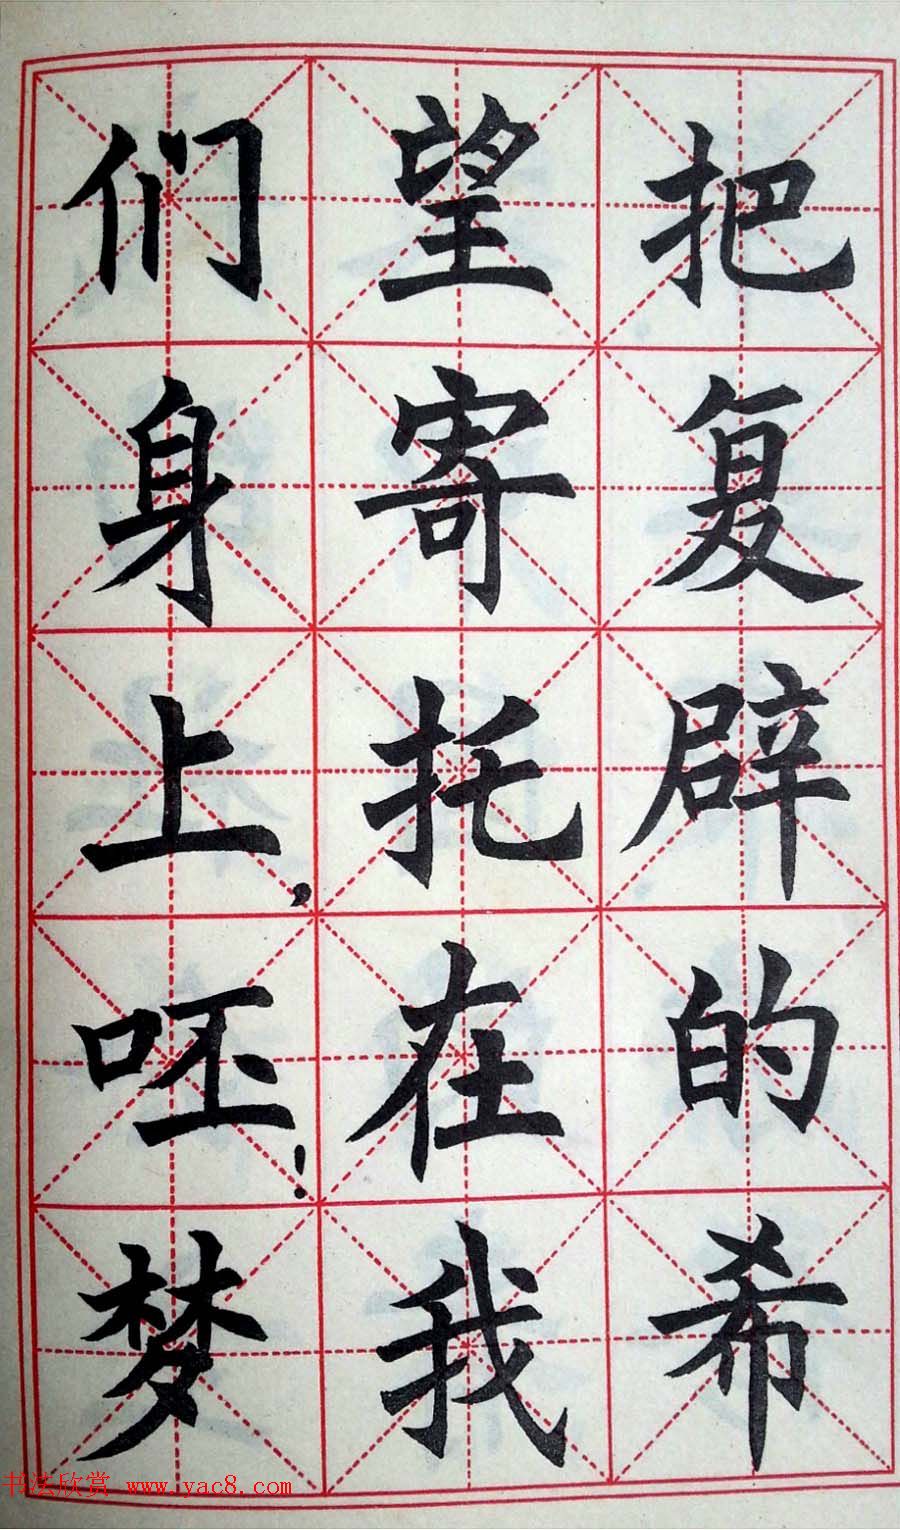 把复辟的希
望寄托在我
们身上，呸！梦
书法欣赏 www.yac8.com